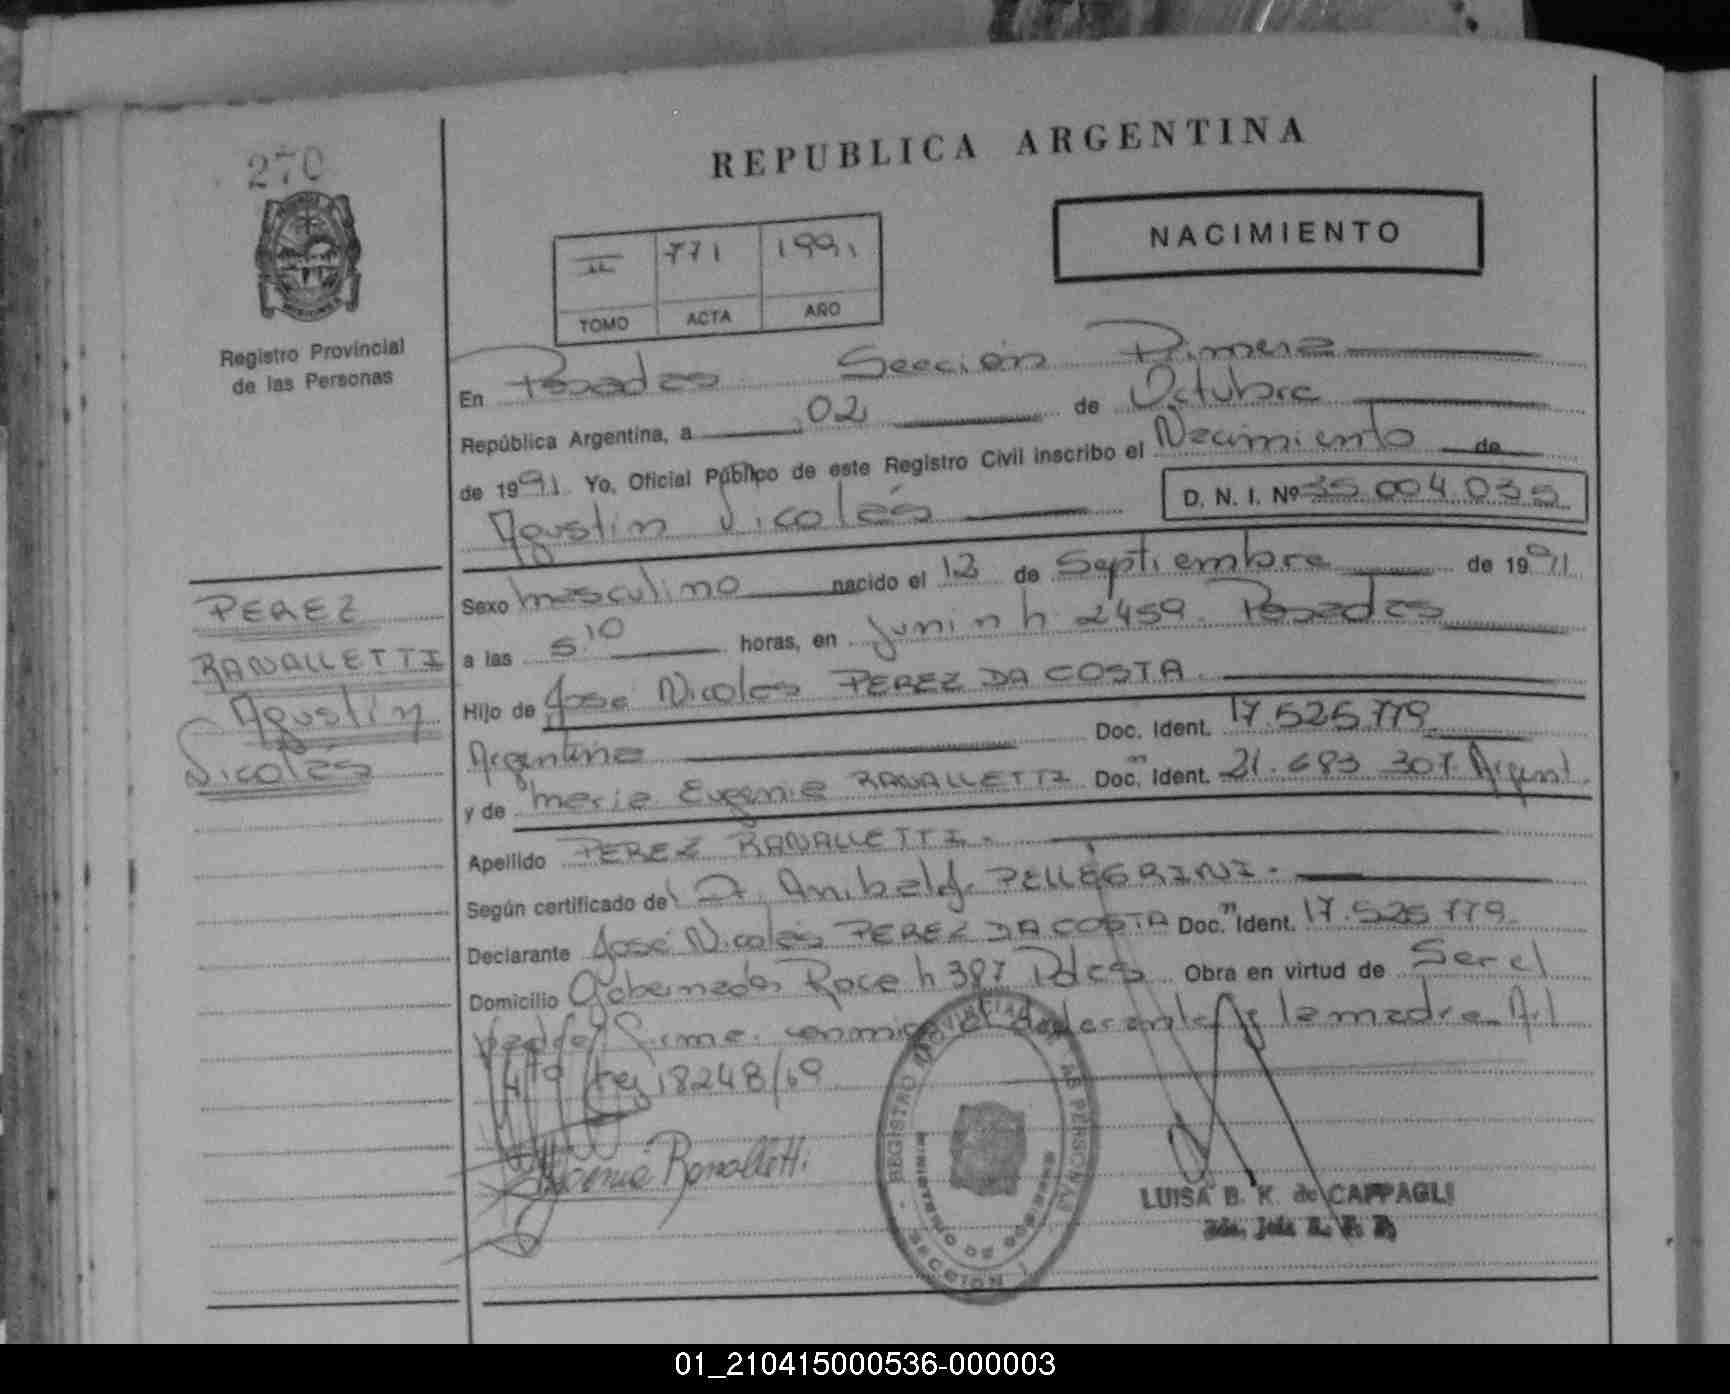 270
REPUBLICA ARGENTINA
NACIMIENTO
II 771 1991
TOMO ACTA AÑO
Registro Provincial
de las Personas
En Posadas Sección Primera
República Argentina, a 02 de Octubre
de 1991 Yo, Oficial Público de este Registro Civil inscribo el Nacimiento de
Agustín Nicolás D. N. I. Nº 35.004.035
PEREZ
RANALLETTI
Agustín
Nicolás
Sexo masculino nacido el 12 de Septiembre de 1991
a las 5:10 horas, en Junín n 2459. Posadas
Hijo de José Nicolás PEREZ DA COSTA
Argentina Doc. Ident. 17.525.779
y de María Eugenia RANALLETTI Doc. Ident. 21.683.307. Argent.
Apellido PEREZ RANALLETTI.
Según certificado del Dr. Anibal J. PELLEGRINI.
Declarante José Nicolás PEREZ DA COSTA Doc. Ident. 17.525.779
Domicilio Gobernador Roca n 387 Pdas Obra en virtud de Ser el
padre, firma conmigo el declarante y la madre Art
4to ley 18248/69
Eugenia Ranalletti
REGISTRO PROVINCIAL DE LAS PERSONAS
MINISTERIO DE GOBIERNO
SECCION 1
LUISA B. K. de CAPPAGLI
01_210415000536-000003